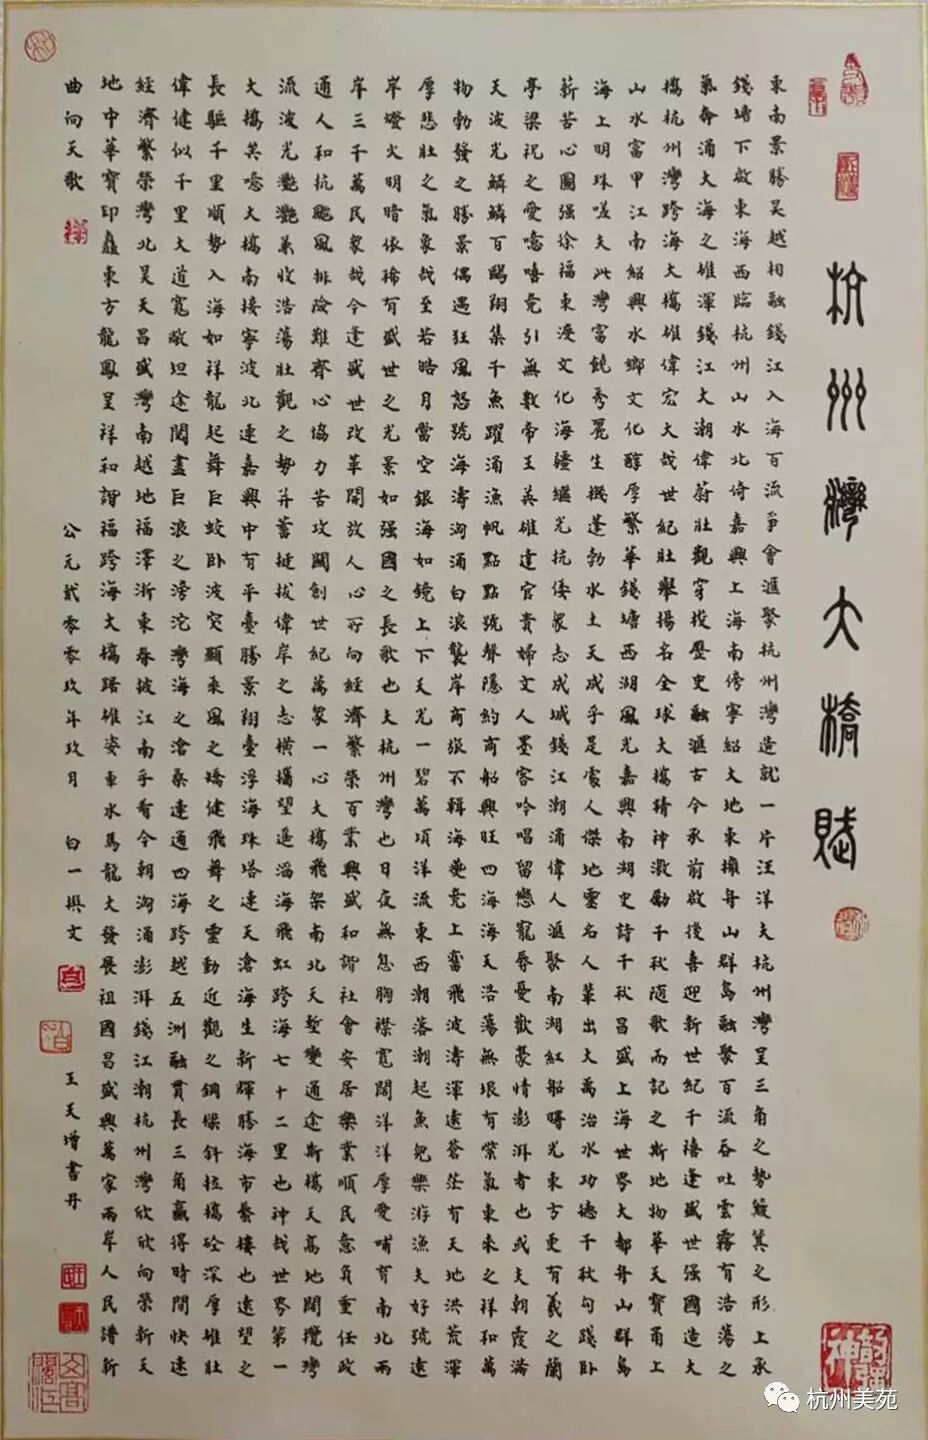 杭州灣大橋賦
東南景勝吴越相融錢江入海百流爭會匯聚杭州灣造就一片汪洋夫杭州灣呈三角之勢簸箕之形上承
錢塘下啟東海西臨杭州山水北倚嘉興上海南傍寧紹大地東擁舟山群島融聚百流吞吐雲霧有浩蕩之
氣奔涌大海之雄渾錢江大潮偉蔚壯觀穿投歷史融匯古今承前啟後喜迎新世紀千禧逢盛世强國造大
橋杭州灣跨海大橋雄偉宏大哉世紀壯舉揚名全球大橋精神激勵千秋隨歌而記之斯地物華天寶甬上
山水富甲江南紹興水鄉文化醇厚繁華錢塘西湖風光嘉興南湖史詩千秋昌盛上海世界大都舟山群島
海上明珠嗟夫此灣富饒秀麗生機蓬勃水土天成乎是處人傑地靈名人輩出大禹治水功德千秋句踐卧
薪苦心圖强徐福東渡文化海疆繼光抗倭眾志成城錢江潮涌偉人匯聚南湖紅船曙光東方更有羲之蘭
亭梁祝之愛噫嘻竞引無數帝王英雄達官貴婦文人墨客吟唱留戀寵辱憂歡豪情澎湃者也或夫朝霞滿
天波光鱗鱗百鷗翔集千魚躍涌漁帆點點號聲隱約商船興旺四海海天浩蕩無垠有紫氣東來之祥和萬
物勃發之勝景偶遇狂風怒號海濤洶涌白浪襲岸商旅不輯海燕竞上奮飛波濤渾遠蒼茫有天地洪荒渾
厚悲壯之氣象哉至若皓月當空銀海如鏡上下天光一碧萬頃洋流東西潮落潮起魚兒樂游漁夫好號遠
岸燈火明暗依稀有盛世之光景如强國之長歌也夫杭州灣也日夜無息胸襟寬闊洋洋厚愛哺育南北兩
岸三千萬民眾哉今逢盛世改革開放人心所向經濟繁榮百業興盛和諧社會安居樂業順民意負重任政
通人和抗颶風排險難齊心協力苦攻關創世紀萬眾一心大橋飛架南北天塹變通途斯橋天高地闊攬灣
流波光灧灧兼收浩蕩壯觀之勢并蓄挺拔偉岸之志橫攜望遥滔海飛虹跨海七十二里也神哉世界第一
大橋美噫大橋南接寧波北連嘉興中有平臺勝景翔臺浮海珠塔連天滄海生新輝勝海市蜃樓也遠望之
長驅千里順勢入海如祥龍起舞巨蛟卧波突顯乘風之矯健飛舞之靈動近觀之鋼樑斜拉橋砼深厚雄壯
偉健似千里大道寬敞坦途閱盡巨浪之滂沱灣海之滄桑連通四海跨越五洲融貫長三角贏得時間快速
經濟繁榮灣北吴天昌盛灣南越地福澤浙東春披江南乎看今朝洶涌澎湃錢江潮杭州灣欣欣向榮新天
地中華寶印矗東方龍鳳呈祥和諧福跨海大橋踞雄姿車水馬龍大發展祖國昌盛興萬家兩岸人民譜新
曲向天歌
公元貳零零玖年玖月 白一撰文
王天增書丹
杭州美苑